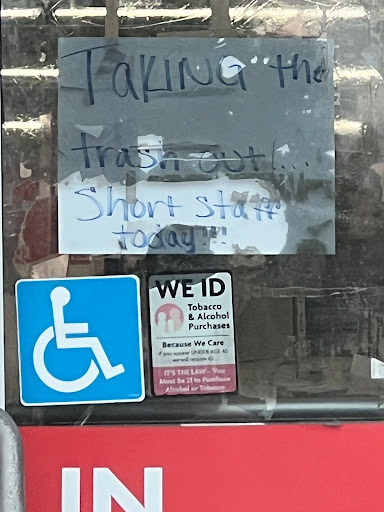 TAKING the
trash out!....
Short staff
today!!!
WE ID
Tobacco
& Alcohol
Purchases
Because We Care
if you appear UNDER AGE 40
we will require ID
IT'S THE LAW - You
Must Be 21 to Purchase
Alcohol or Tobacco
IN